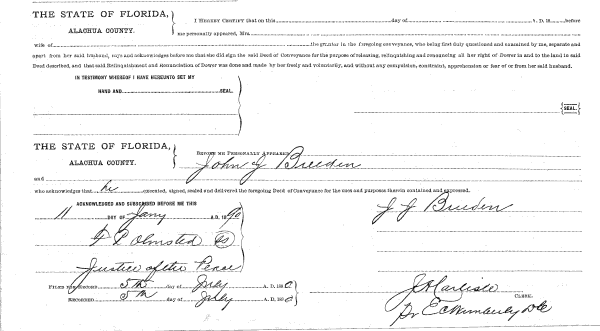 THE STATE OF FLORIDA,
ALACHUA COUNTY.
I HEREBY CERTIFY that on this day of A. D. 18 before
me personally appeared, Mrs.
wife of the grantor in the foregoing conveyance, who being first duly questioned and examined by me, separate and
apart from her said husband, says and acknowledges before me that she did sign the said Deed of Conveyance for the purpose of releasing, relinquishing and renouncing all her right of Dower in and to the land in said
Deed described, and that said Relinquishment and Renunciation of Dower was done and made by her freely and voluntarily, and without any compulsion, constraint, apprehension or fear of or from her said husband.
IN TESTIMONY WHEREOF I HAVE HEREUNTO SET MY
HAND AND SEAL.
SEAL.
THE STATE OF FLORIDA,
ALACHUA COUNTY.
BEFORE ME PERSONALLY APPEARED
John J Breeden
and
who acknowledges that he executed, signed, sealed and delivered the foregoing Deed of Conveyance for the uses and purposes therein contained and expressed.
ACKNOWLEDGED AND SUBSCRIBED BEFORE ME THIS
11 DAY OF Jany A. D. 1890
J J Breeden
Olmsted
Justice of the Peace
FILED FOR RECORD 5th day of July A. D. 1890
RECORDED 5th day of July A. D. 1890
J H Carlisle
CLERK.
Pr E C Wimberly D C